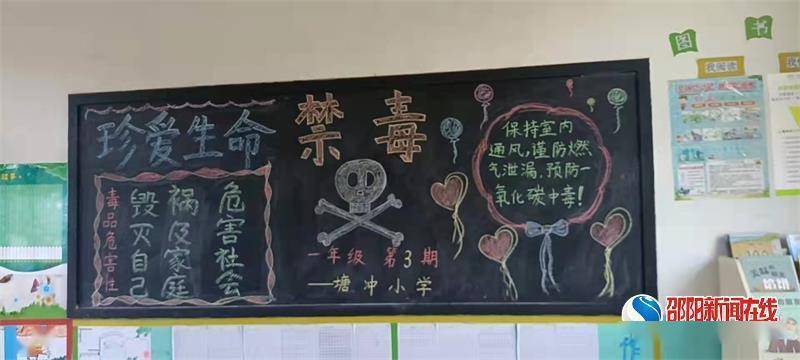 图 书
禁毒
珍爱生命
我阅读
保持室内
通风，谨防燃
气泄漏，预防一
氧化碳中毒！
毒品危害性
毁灭自己
祸及家庭
危害社会
一年级 第3期
——塘冲小学
邵阳新闻在线